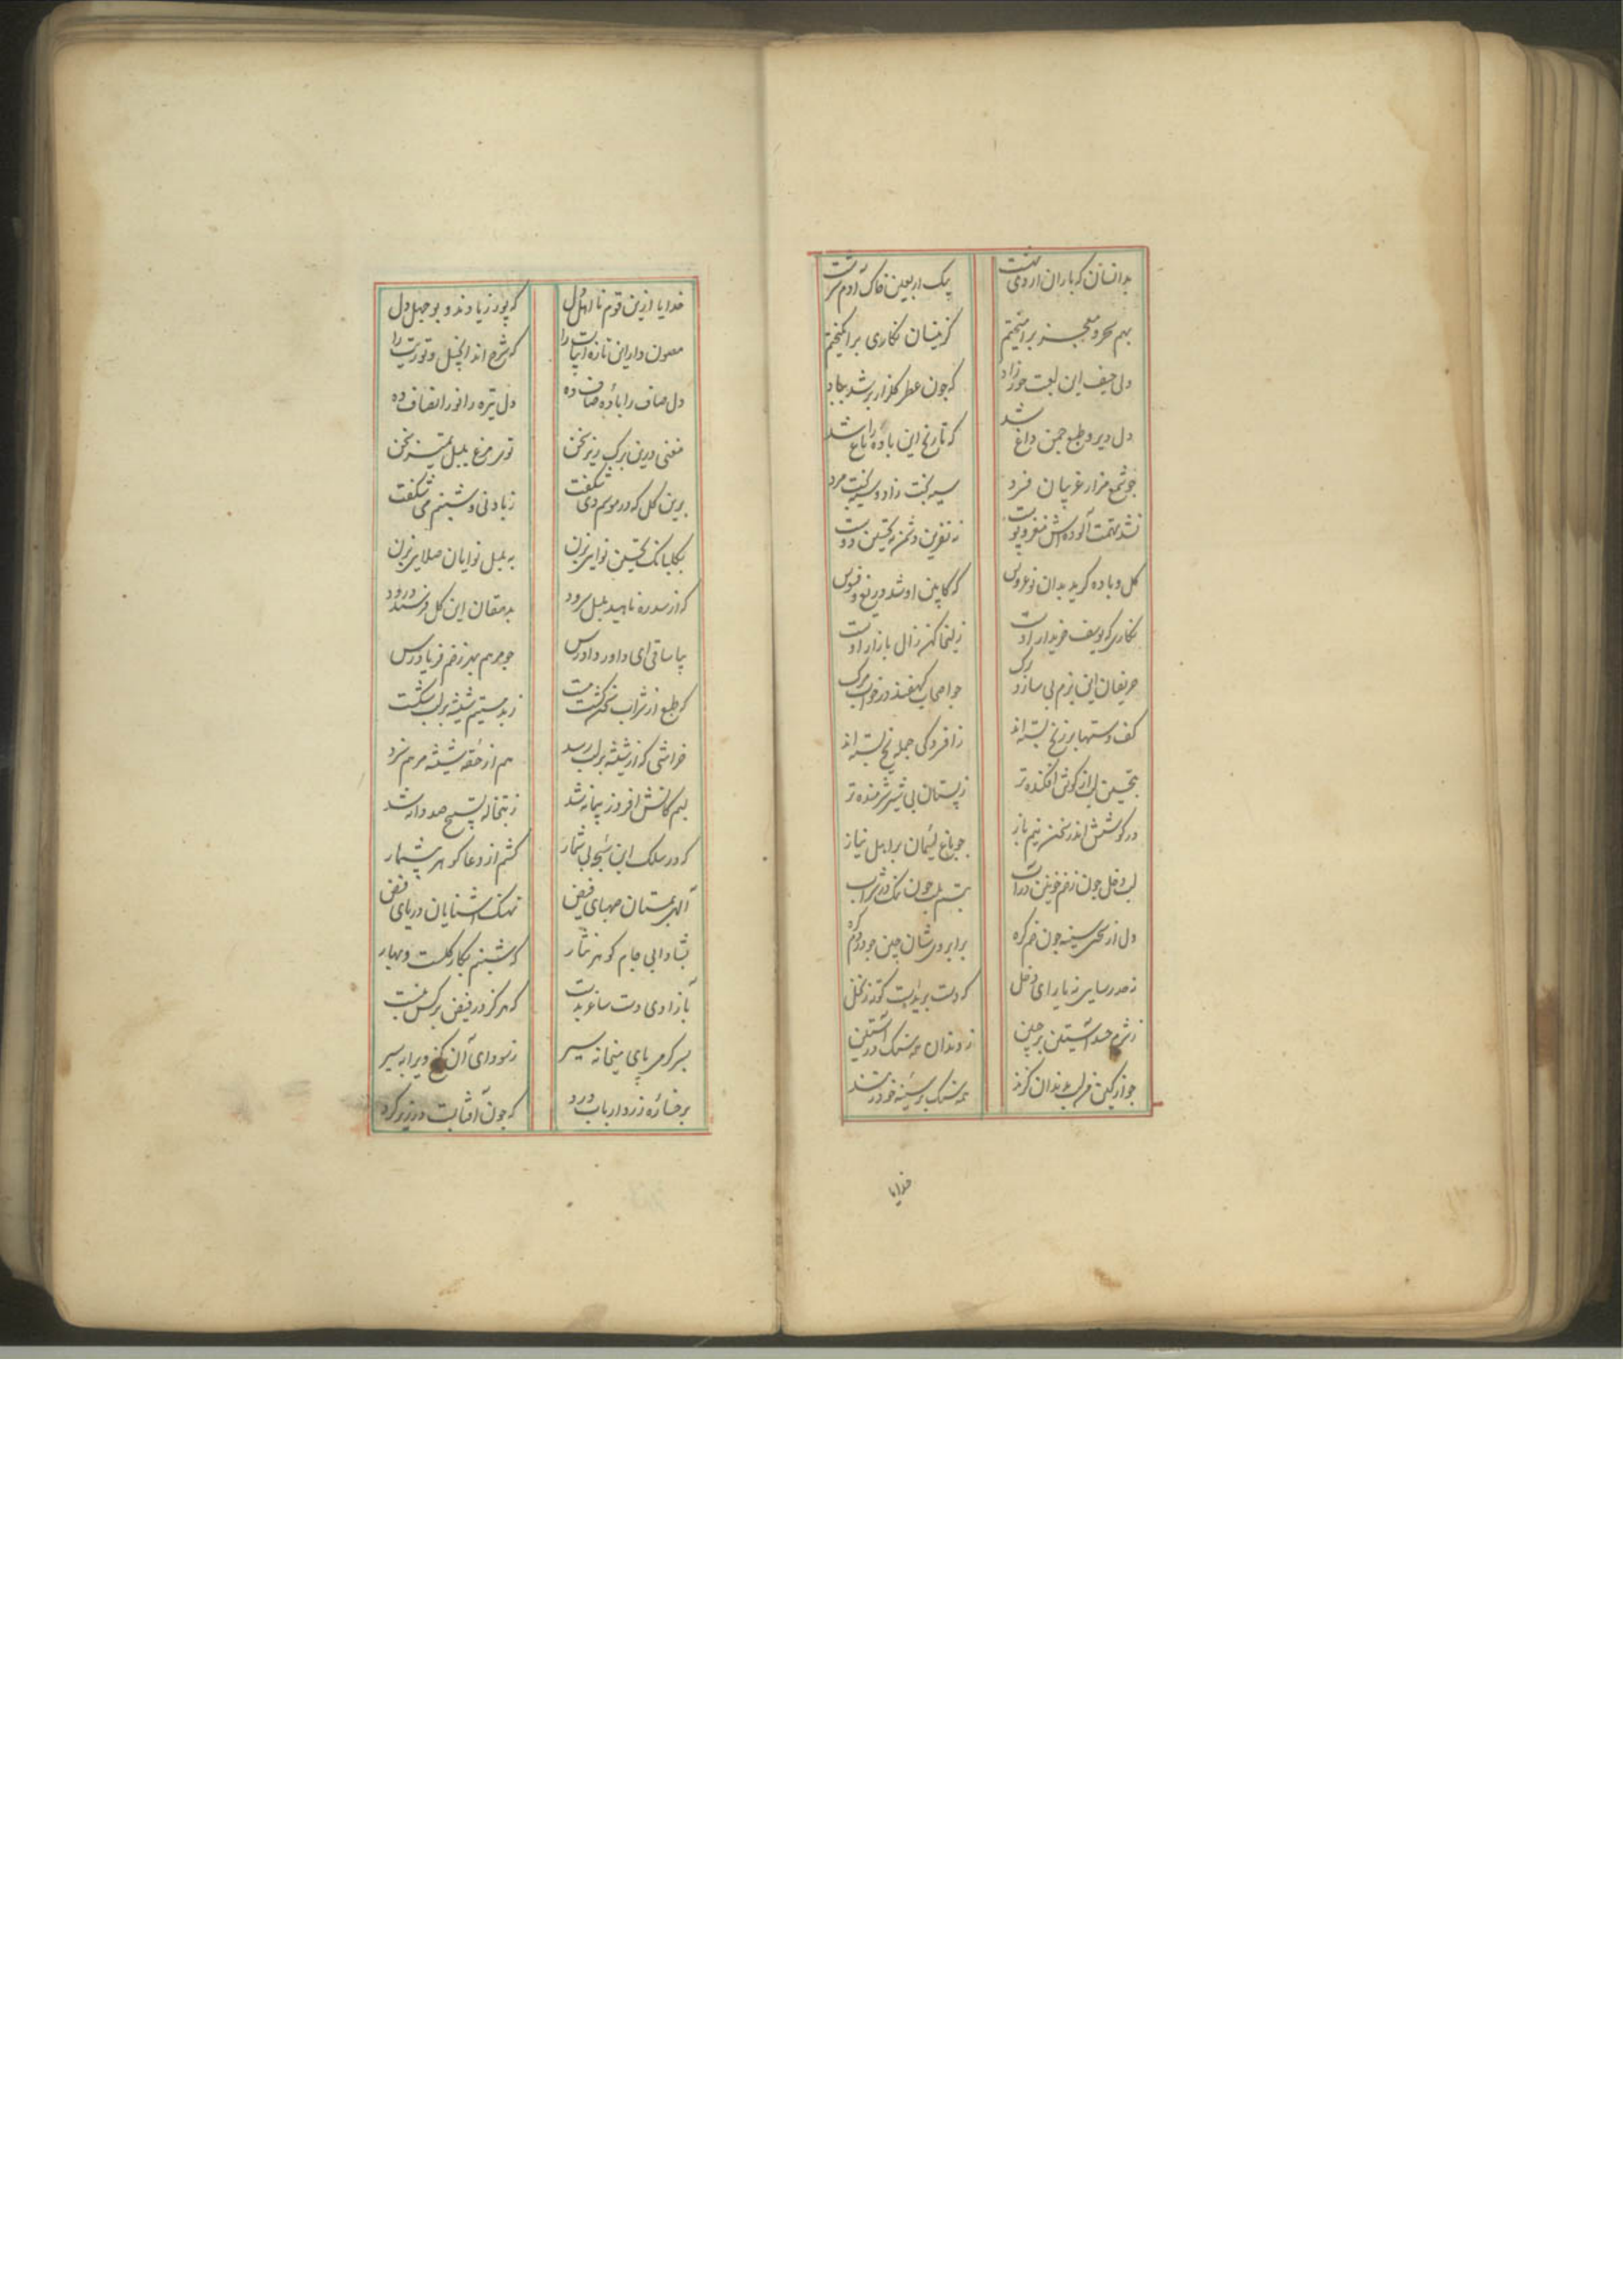 بدانسان که باران اردی بهشت	بیک اربعین خاک آدم سرشت
بهم سحر و معجز برامیختم	کزینسان نکاری برانکیختم
ولی حیف این لعبت حورزاد	که چون عطر کلزار بر شد بباد
دل دیر و طبع چمن داغ شد	که تاریخ این باده باغ شد
چو شمع مزار غریبان فرد	سیه بخت زاد و سیه بخت مرد
نشد تهمت آلوده اش مغز و پوست	نه نفرین دشمن نه تحسین دوست
کل و باده کرید بدان نوعروس	که کابین او شد دریغ و فسوس
نکاری که یوسف خریدار اوست	زلیخا کهن زال بازار اوست
حریفان این بزم بی ساز و برک	چو اصحاب کهفند در خواب مرک
کف دستها بر زنخ بسته اند	ز افسردکی جمله یخ بسته اند
بتحسین لب از کوش افکنده تر	ز پستان بی شیر شرمنده تر
در کوششش اندر سخن نیم باز	چو باغ لئیمان بر اهل نیاز
لب دخل چون زخم خونین در آب	تبسم بلب چون نمک در شراب
دل از سحر سینه چون خم کره	بر ابرویشان چین چو دم کره
نه صدر سایر نه یارای دخل	که دست بریده است کوته ز نخل
ز شرم حسد آستین بر جبین	ز دندان همه سنک در آستین
چو از کین فرو لب بدندان کزند	همه سنک بر سینه خود زنند
خدایا
خدایا ازین قوم نااهل دل	که پور زیادند و بوجهل دل
مصون دار این تازه ابیات را	که شرح اند انجیل و تورات را
دل صاف را باده صاف ده	دل تیره را نور انصاف ده
مغنی درین برک ریز سخن	توی مرغ بلبل تمیز سخن
برین کل که در موسم دی شکفت	ز باد نی و شبنم می شکفت
بکلبانک تحسین نوایی بزن	به بلبل نوایان صلایی بزن
که از سدره ناهید بلبل سرود	بدهقان این کل فرستد درود
بیا ساقی ای داور دادرس	چو مرهم بهر زخم فریادرس
که طبع از شراب سخن کشت مست	ز بدمستیم شیشه بر لب شکست
خراشی که از شیشه بر لب رسد	هم از حقه شیشه مرهم نزد
لبم کاتش افروز پیمانه شد	ز تبخاله تسبیح صد دانه شد
که در سلک این سبحه بی شمار	کشم از دعا کوهر شبنم‌ار
الهی بمستان صهبای فیض	نهنک آشنایان دریای فیض
بشادابی جام کوهر نثار	که شبنم بکار کلست و بهار
بآزادی دست ساغر بدست	که هرکز در فیض بر کس نبست
بسرکرمی پای میخانه سیر	ز سودای آن کنج ویرانه سیر
برخساره زرد ارباب درد	که چون آفتابست در زیر کرد